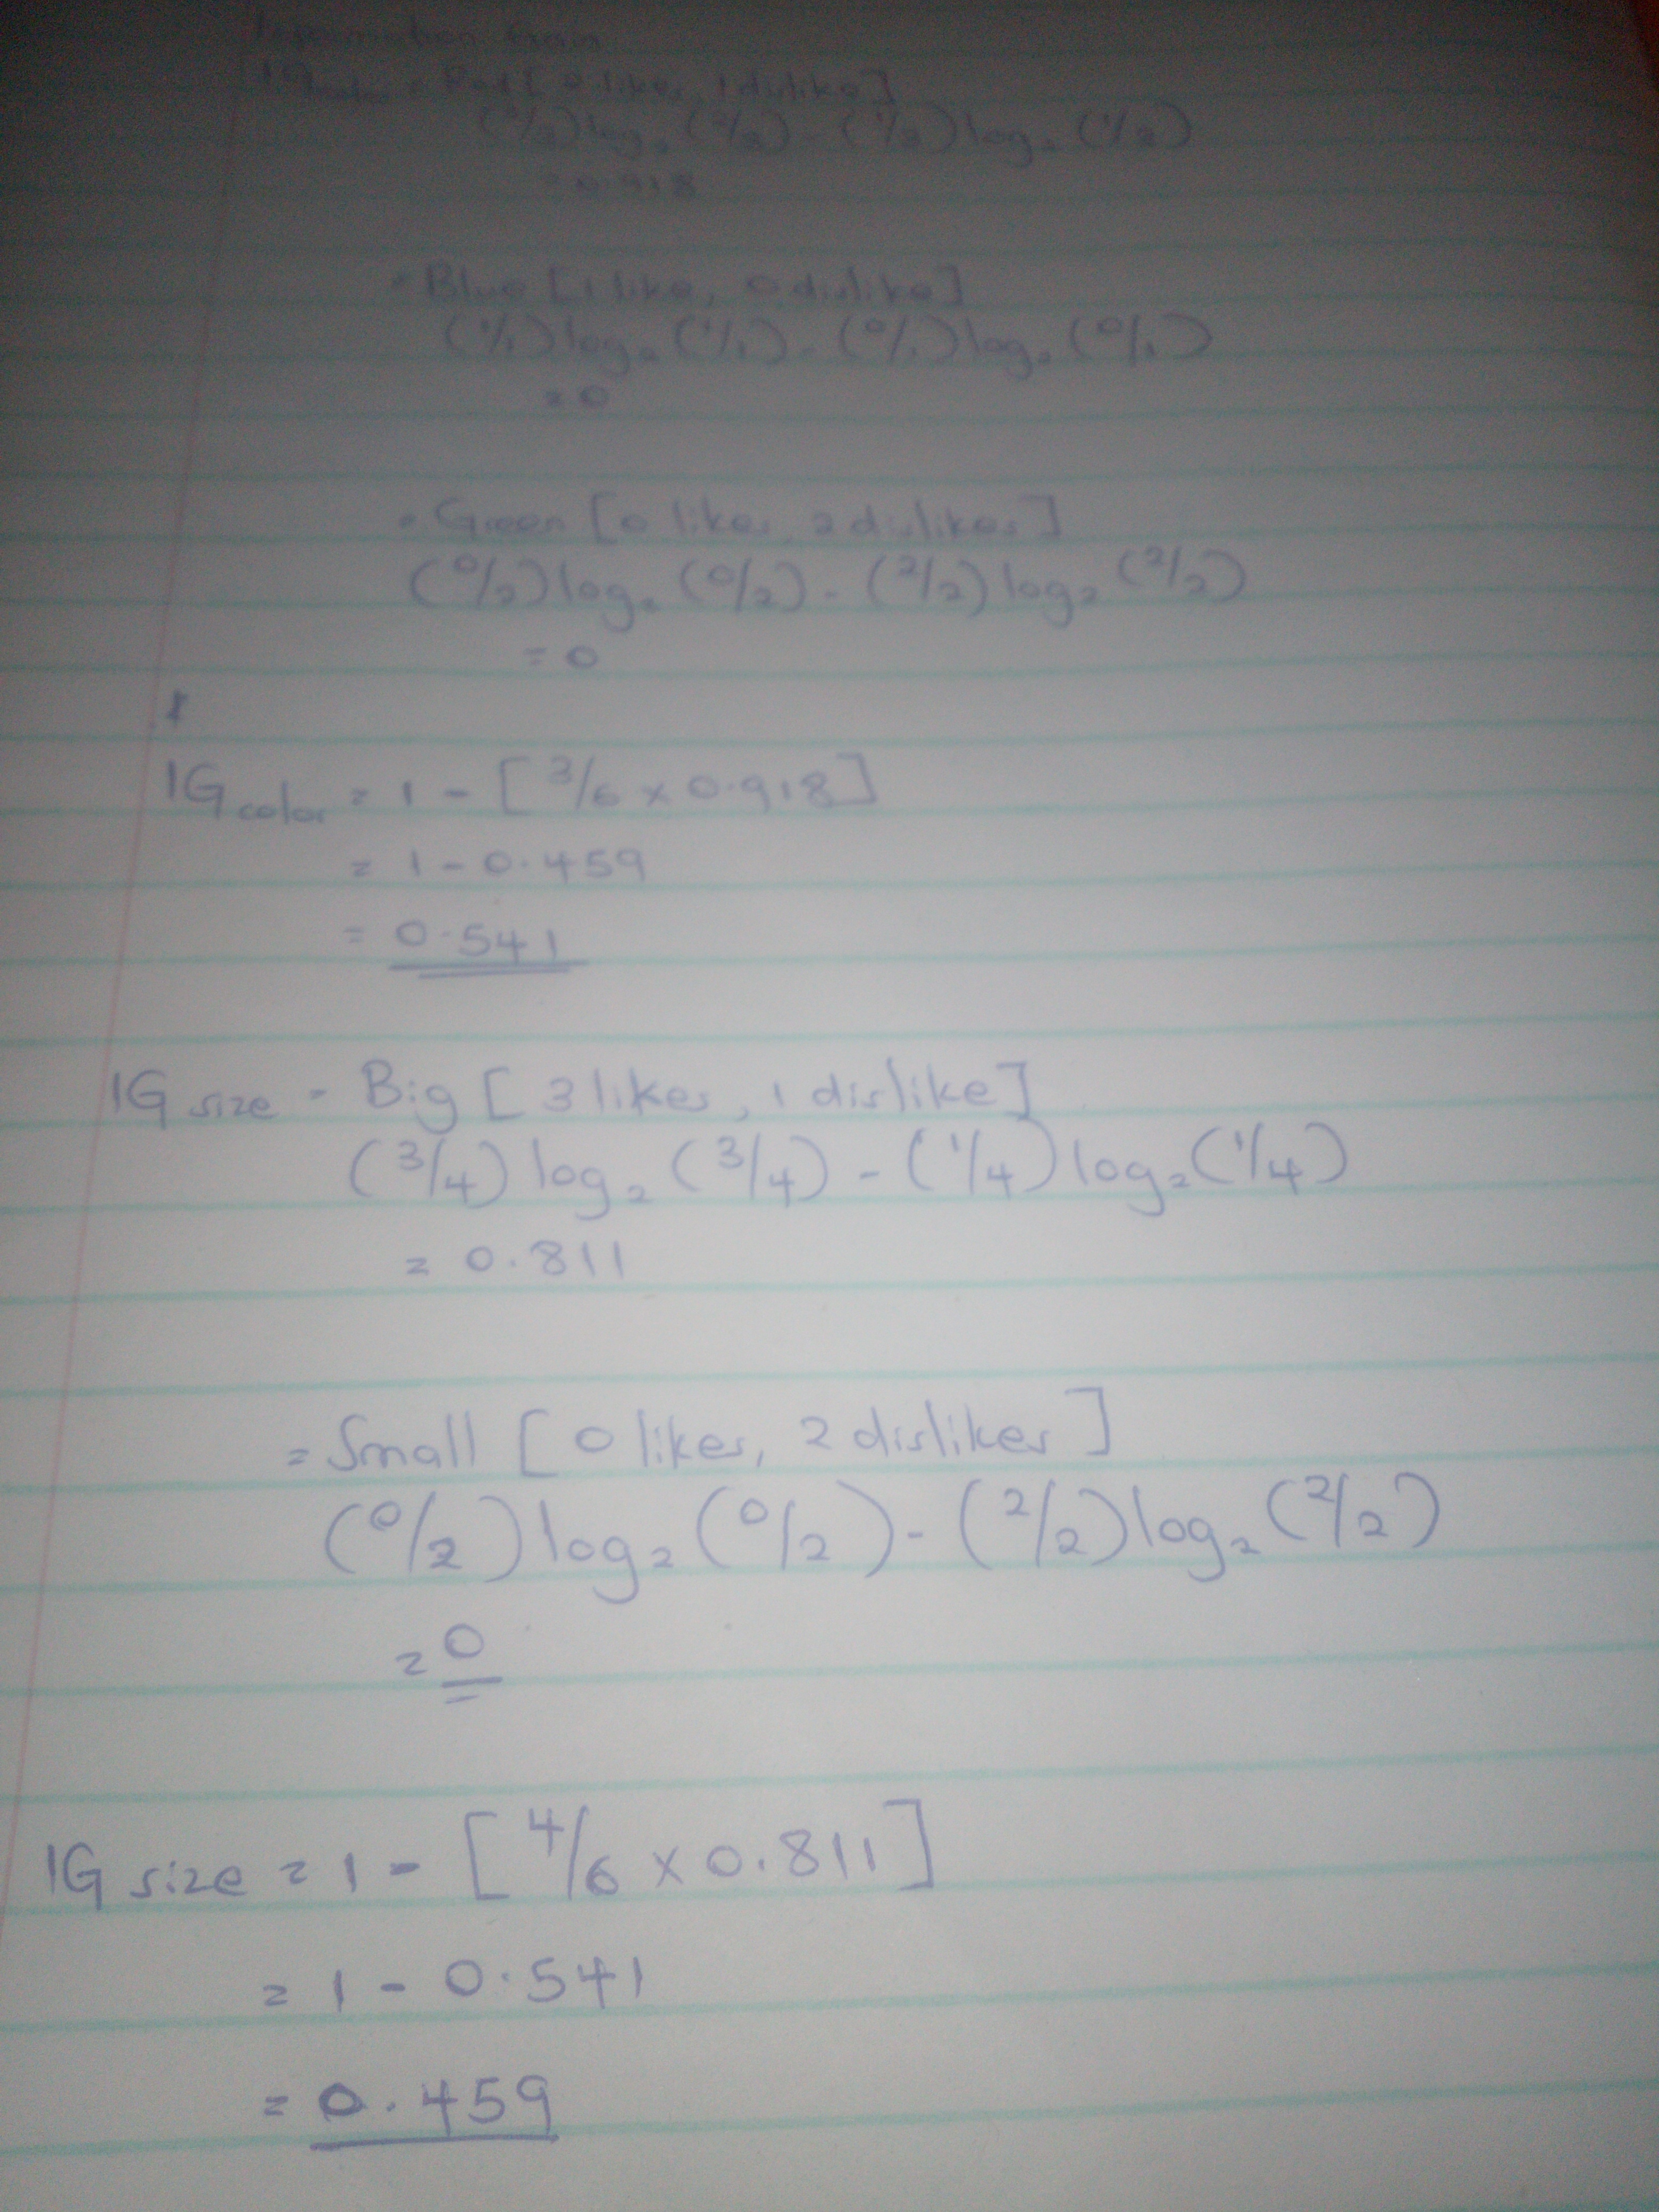 Information Gain
IG color = Red [2 likes, 1 dislike]
(2/3) log₂ (2/3) - (1/3) log₂ (1/3)
= 0.918
- Blue [1 like, 0 dislike]
(1/1) log₂ (1/1) - (0/1) log₂ (0/1)
= 0
- Green [0 likes, 2 dislikes]
(0/2) log₂ (0/2) - (2/2) log₂ (2/2)
= 0
IG color = 1 - [3/6 x 0.918]
= 1 - 0.459
= 0.541
IG size - Big [3 likes, 1 dislike]
(3/4) log₂ (3/4) - (1/4) log₂ (1/4)
= 0.811
= Small [0 likes, 2 dislikes]
(0/2) log₂ (0/2) - (2/2) log₂ (2/2)
= 0
IG size = 1 - [4/6 x 0.811]
= 1 - 0.541
= 0.459